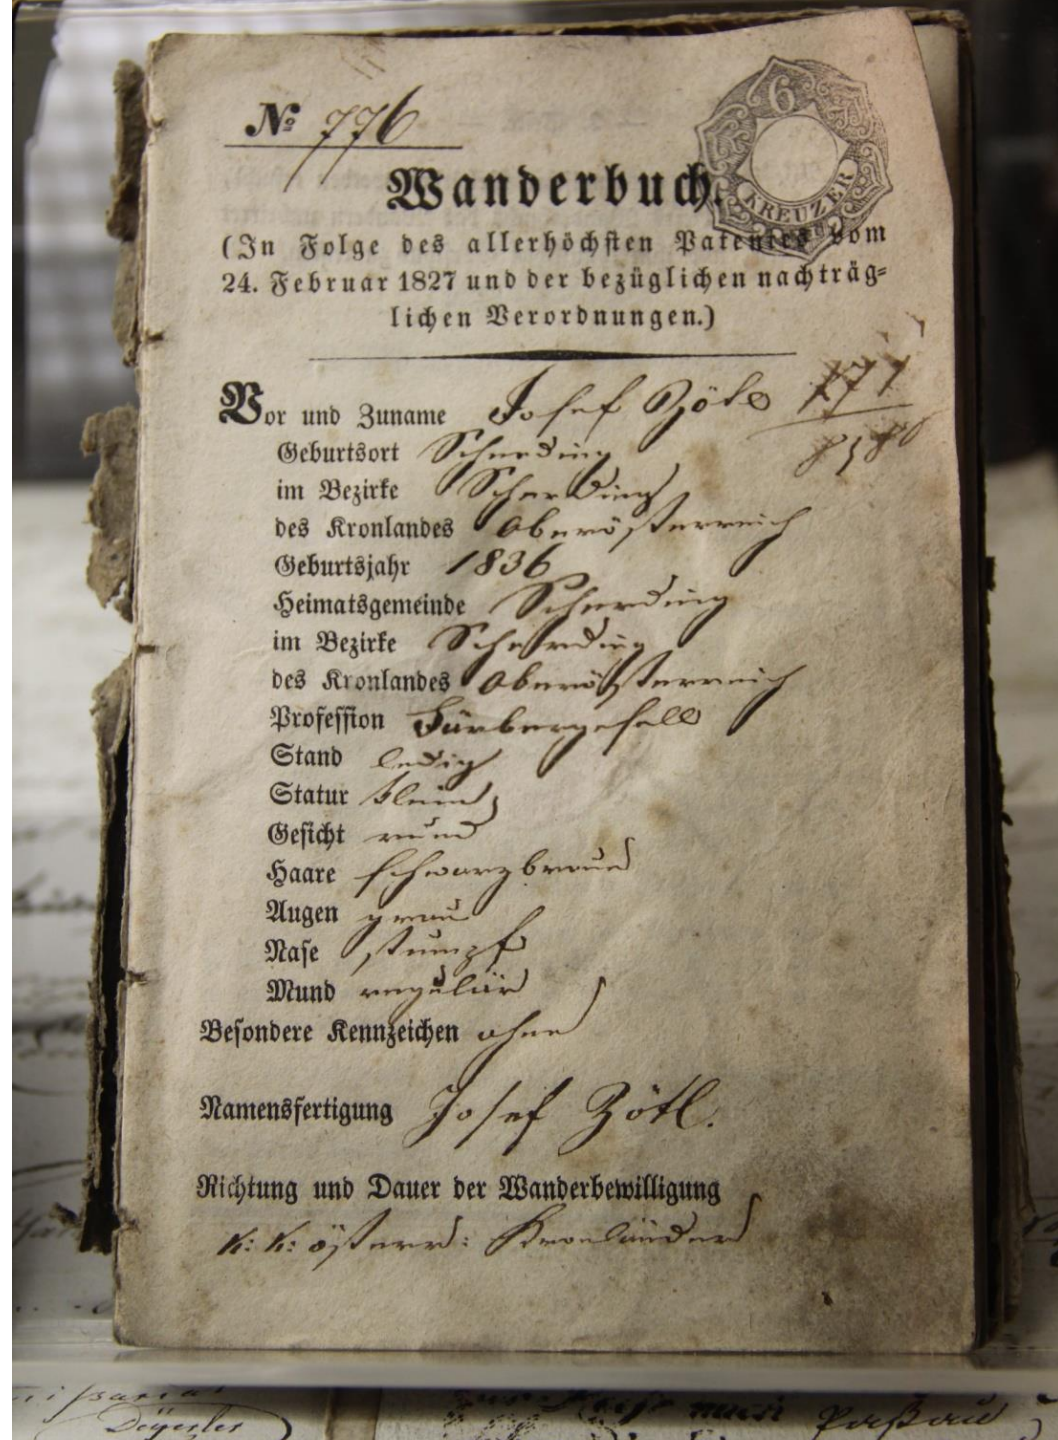 № 776
6
KREUZER
Wanderbuch.
(In Folge des allerhöchsten Patentes vom
24. Februar 1827 und der bezüglichen nachträg-
lichen Verordnungen.)
Vor und Zuname Josef Zötl 777
Geburtsort Scherding
im Bezirke Scherding
des Kronlandes Oberösterreich
Geburtsjahr 1836
Heimatsgemeinde Scherding
im Bezirke Scherding
des Kronlandes Oberösterreich
Profession Färbergesell
Stand ledig
Statur klein
Gesicht rund
Haare schwarzbraun
Augen grau
Nase stumpf
Mund regulär
Besondere Kennzeichen ohne
Namensfertigung Josef Zötl.
Richtung und Dauer der Wanderbewilligung
k: k: österr: Kronländer
Passau